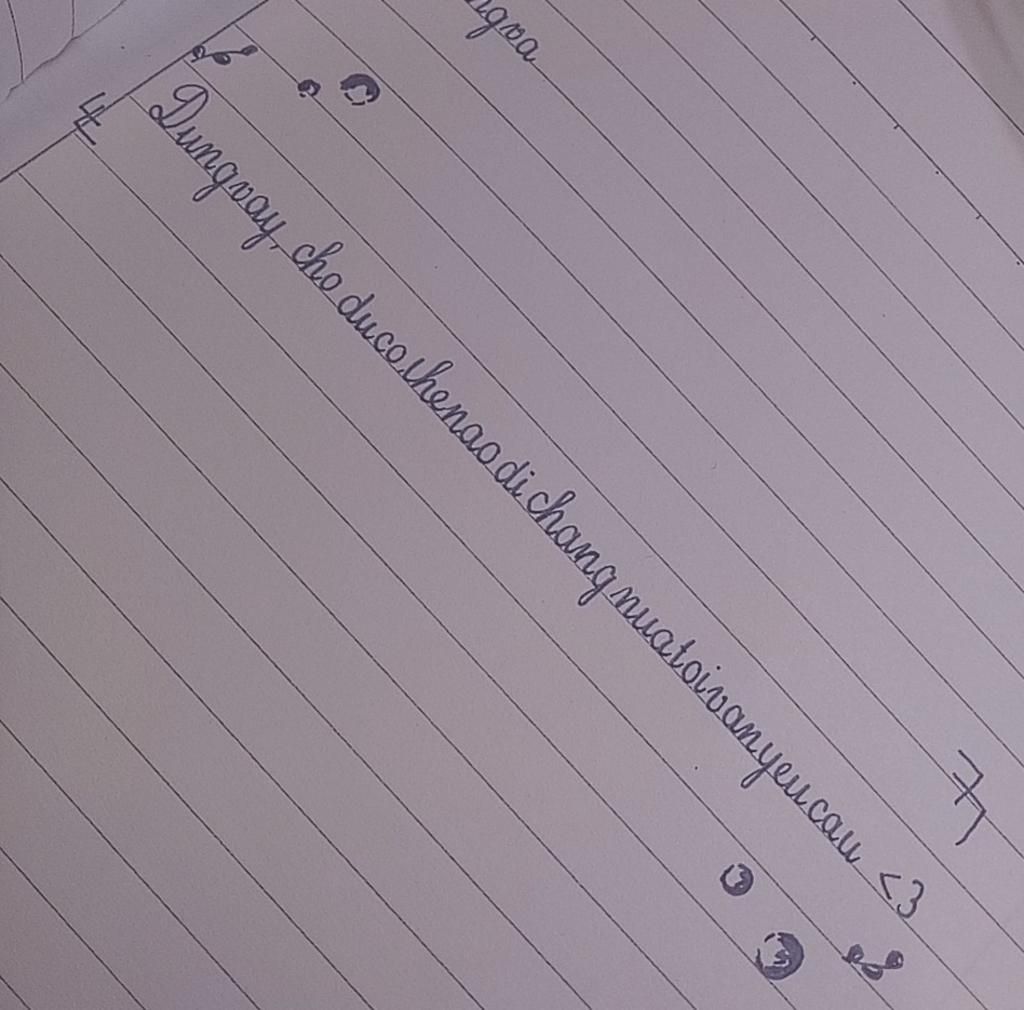 ngva
Dungvay, choducothenaodichangnuatoivanyeucau <3